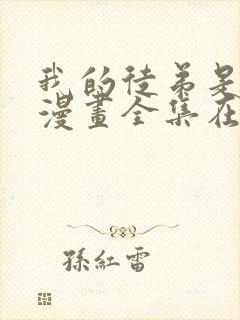 我的徒弟是
漫畫全集在
孫紅雷